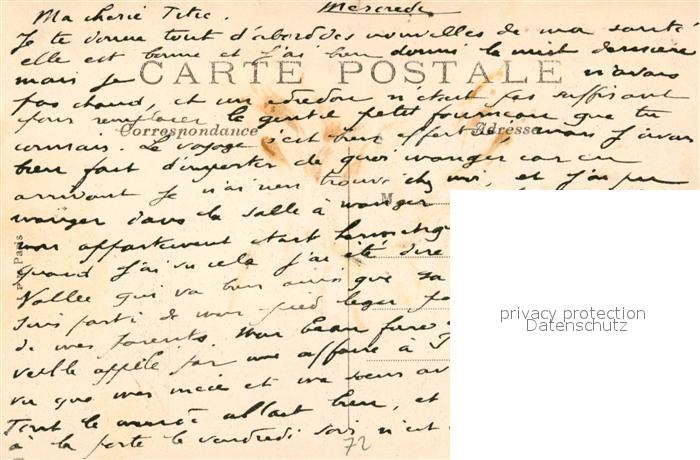 Mercredi
Ma cherie Titie.
Je te donne tout d'abord des nouvelles de ma santé
elle est bonne et j'ai bien dormi la nuit derniere
mais je n'avais
CARTE POSTALE
pas chaud, et un edredon n'était pas suffisant
pour remplacer le gentil petit fourneau que tu
Correspondance
Adresse
connais. Le voyage s'est bien effectué, mais j'avais
bien fait d'emporter de quoi manger car en
arrivant je n'ai rien trouvé chez moi, et j'ai pu
M
manger dans la salle à manger
mon appartement étant
quand j'ai su cela j'ai été dire
Paris
Vallée qui va bien ainsi que sa
suis parti de mon pied leger
de mes parents. Mon beau frere
veille appelé par une affaire à
vu que mes nièce et ma soeur
Tout le monde allait bien, et
à la porte le vendredi soir n'est
72
privacy protection
Datenschutz